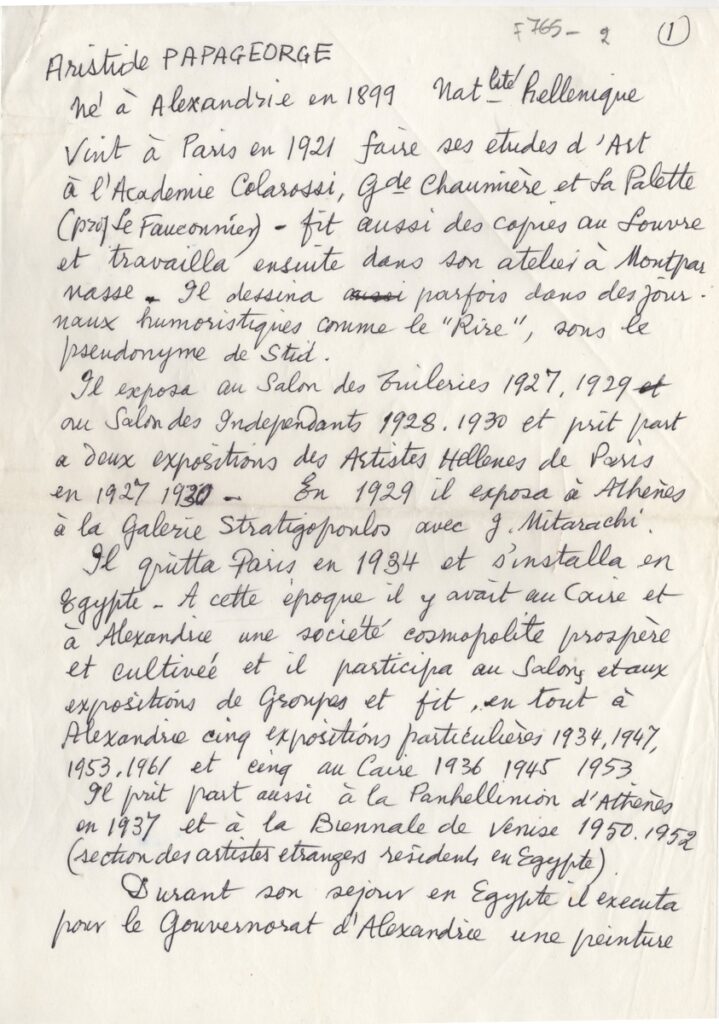 F 765 - 2 (1)
Aristide PAPAGEORGE
Né à Alexandrie en 1899 Nat lité hellenique
Vint à Paris en 1921 faire ses etudes d'Art
à l'Academie Colarossi, Gde Chaumière et La Palette
(prof Le Fauconnier) - fit aussi des copies au Louvre
et travailla ensuite dans son atelier à Montpar
nasse. Il dessina aussi parfois dans des jour-
naux humoristiques comme le "Rire", sous le
pseudonyme de Stid.
Il exposa au Salon des Tuileries 1927, 1929 et
au Salon des Independants 1928. 1930 et prit part
a deux expositions des Artistes Hellenes de Paris
en 1927 1930 - En 1929 il exposa à Athènes
à la Galerie Stratigopoulos avec J. Mitarachi.
Il quitta Paris en 1934 et s'installa en
Egypte - A cette époque il y avait au Caire et
à Alexandrie une société cosmopolite prospère
et cultiveé et il participa au Salons et aux
expositions de Groupes et fit, en tout à
Alexandrie cinq expositions particulières 1934, 1947,
1953, 1961 et cinq au Caire 1936 1945 1953
Il prit part aussi à la Panhellinion d'Athènes
en 1937 et à la Biennale de Venise 1950. 1952
(section des artistes etrangers residents en Egypte)
Durant son sejour en Egypte il executa
pour le Gouvernorat d'Alexandrie une peinture